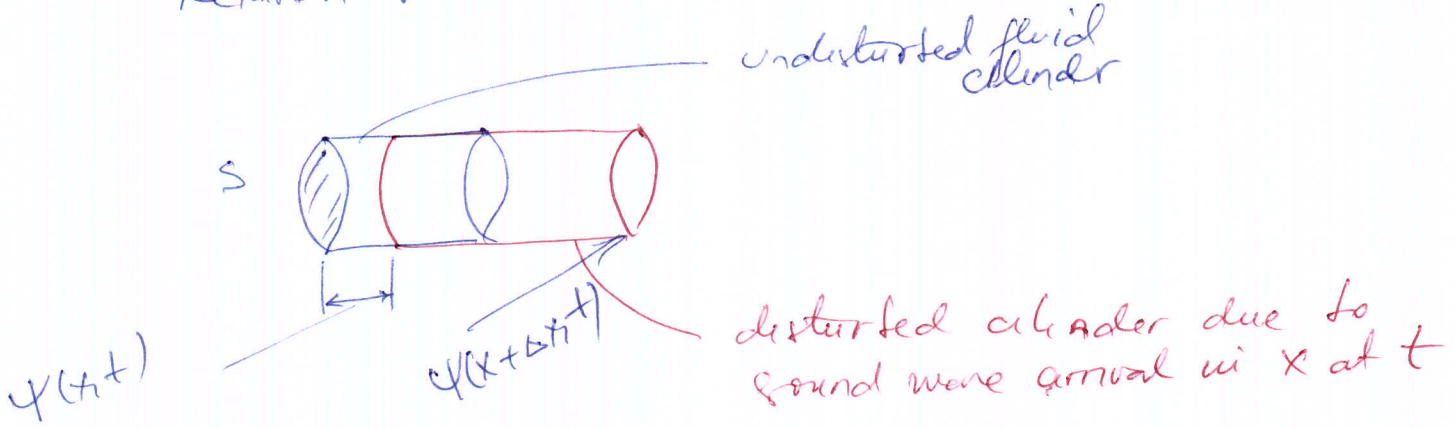 undisturbed fluid
cylinder
S
ψ(x,t)
ψ(x+Δx,t)
disturbed cylinder due to
sound wave arrival in x at t